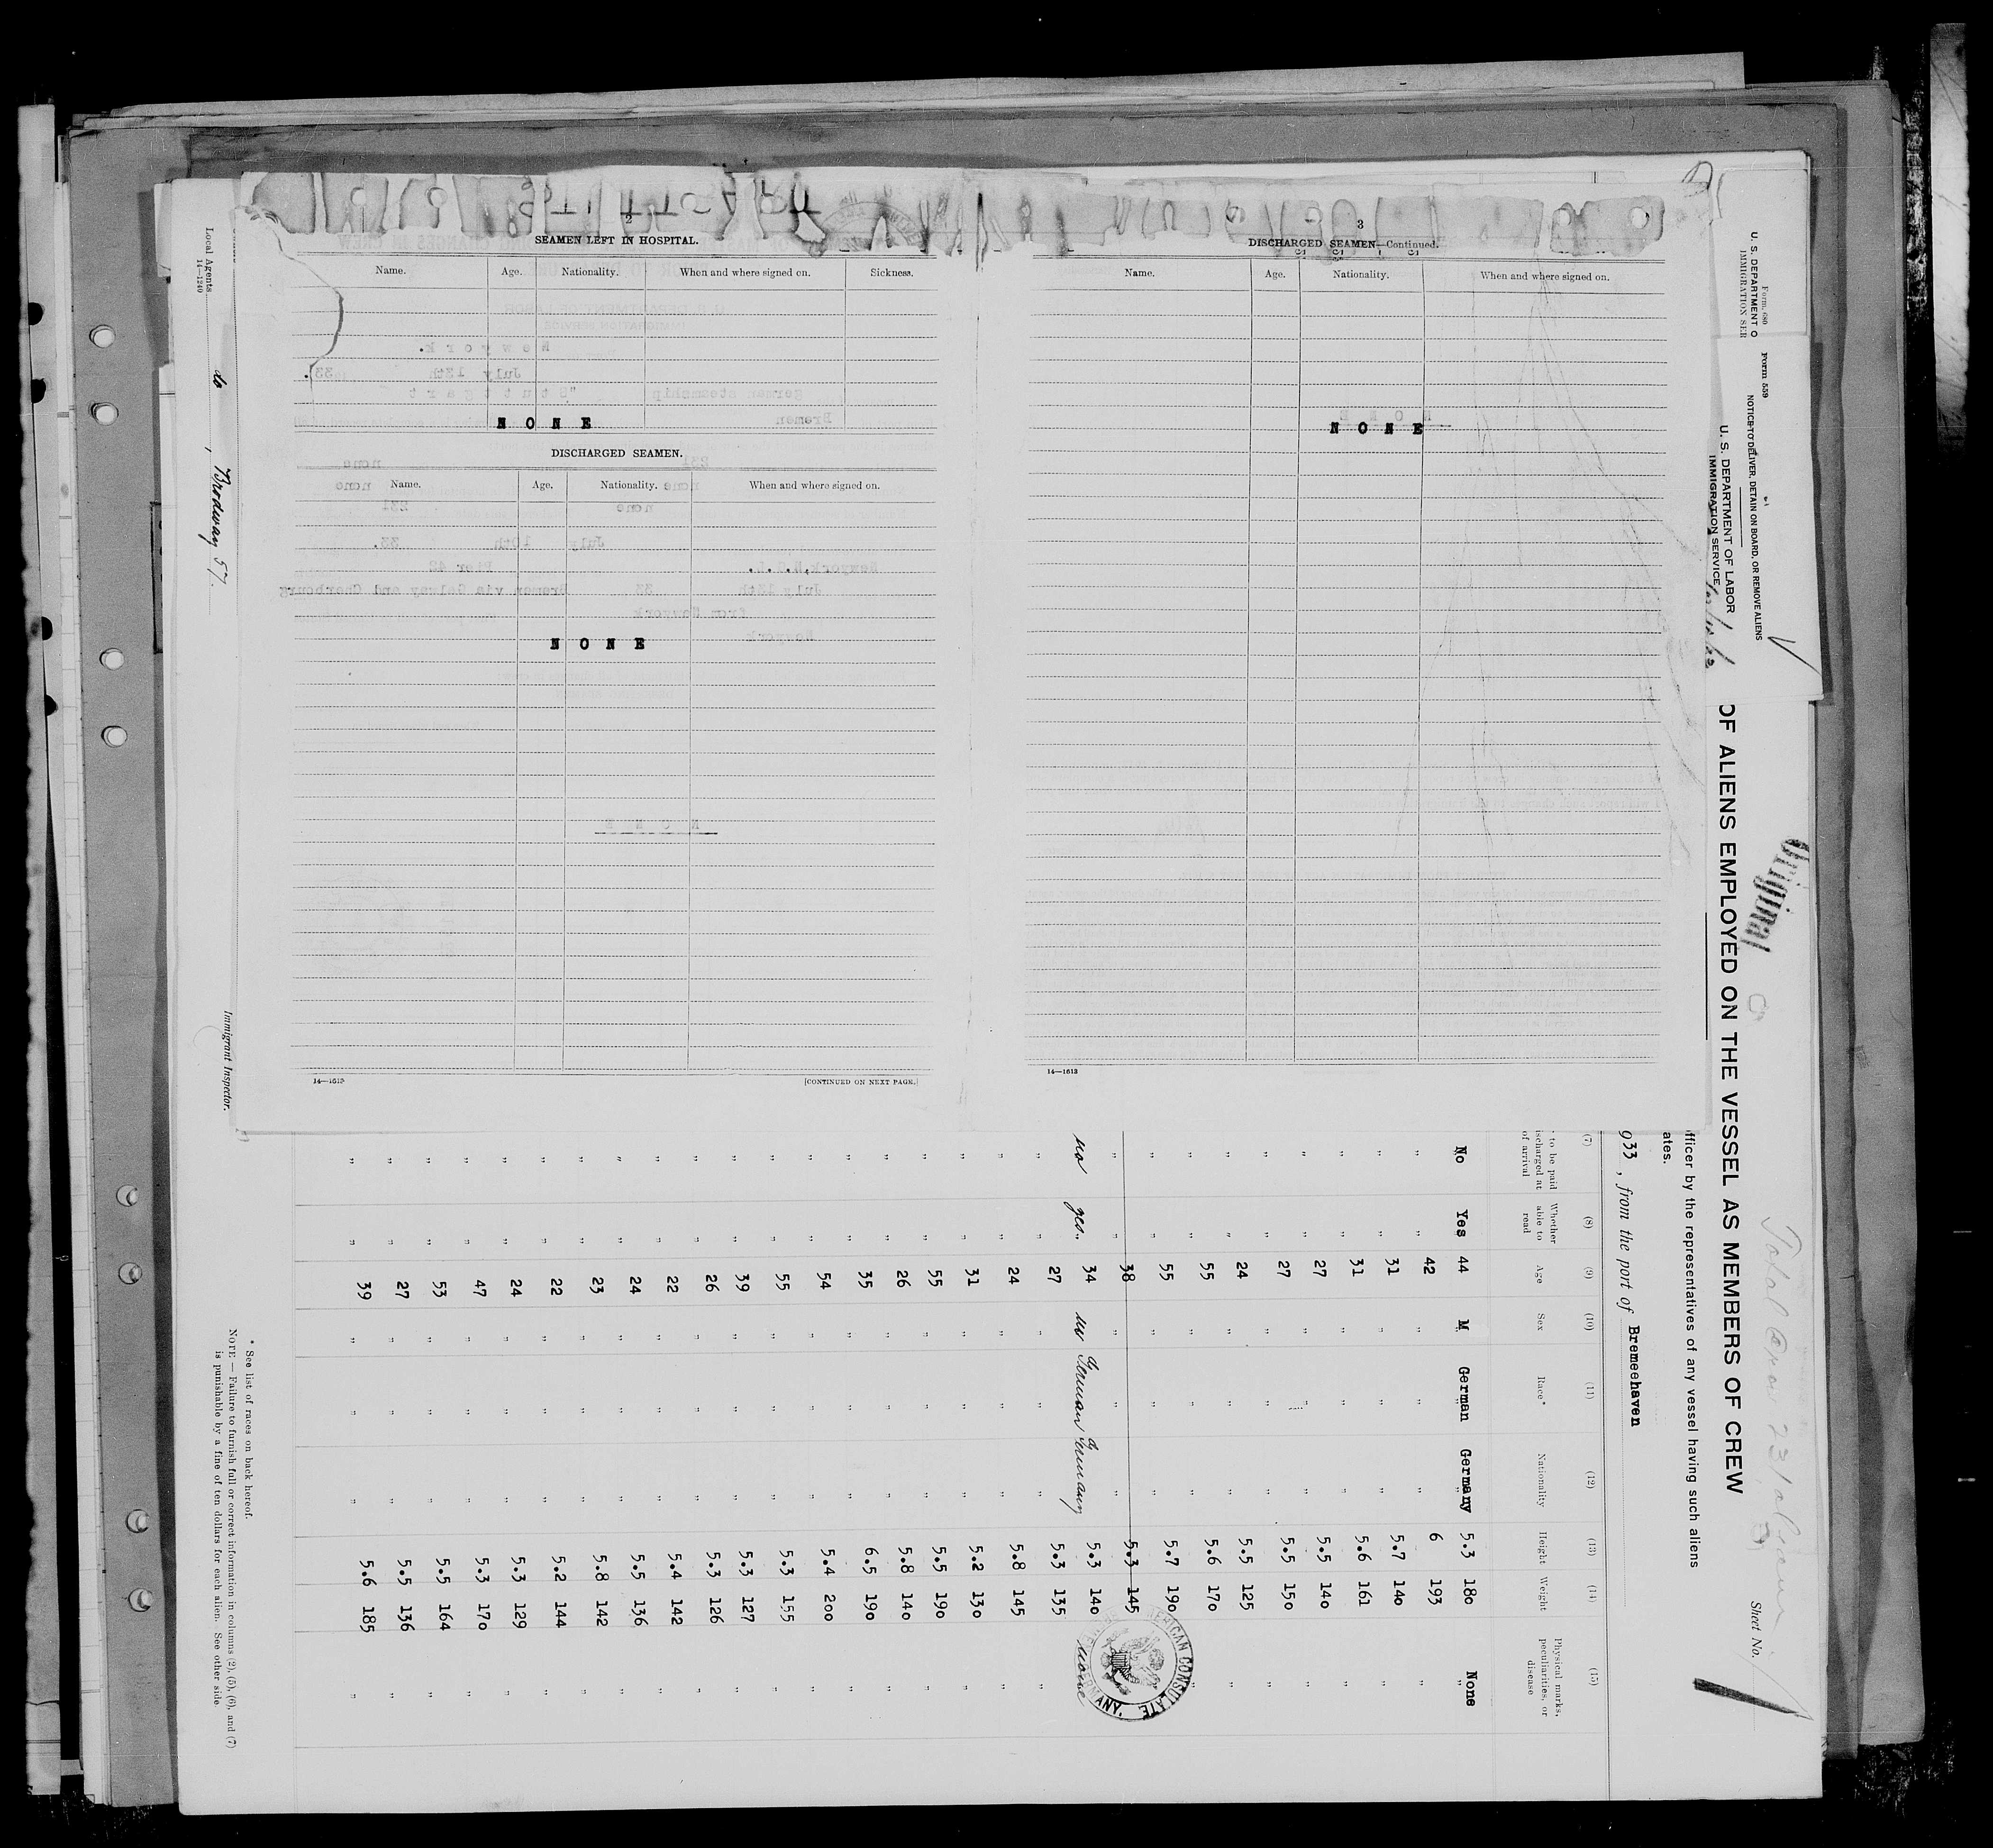 2
SEAMEN LEFT IN HOSPITAL.
Name. Age. Nationality. When and where signed on. Sickness.
N O N E
DISCHARGED SEAMEN.
Name. Age. Nationality. When and where signed on.
N O N E
14—1613
[CONTINUED ON NEXT PAGE.]
3
DISCHARGED SEAMEN—Continued.
Name. Age. Nationality. When and where signed on.
N O N E
14—1613
Form 680
U. S. DEPARTMENT O
IMMIGRATION SER
Form 559
NOTICE TO DELIVER, DETAIN ON BOARD, OR REMOVE ALIENS
U. S. DEPARTMENT OF LABOR
IMMIGRATION SERVICE
Original
Sheet No.
OF ALIENS EMPLOYED ON THE VESSEL AS MEMBERS OF CREW
fficer by the representatives of any vessel having such aliens
ates.
933 , from the port of Bremeehaven
(7) (8) (9) (10) (11) (12) (13) (14) (15)
to be paid ischarged at of arrival Whether able to read Age Sex Race* Nationality Height Weight Physical marks, peculiarities, or disease
No Yes 44 M German Germany 5.3 180 None
" " 42 " " " 6 193 "
" " 31 " " " 5.7 140 "
" " 31 " " " 5.6 161 "
" " 27 " " " 5.5 140 "
" " 27 " " " 5.5 150 "
" " 24 " " " 5.5 125 "
" " 55 " " " 5.6 170 "
" " 55 " " " 5.7 190
" " 38 " " " 5.3 145
no yes 34 m German Germany 5.3 140 none
" " 27 " " " 5.3 135 "
" " 24 " " " 5.8 145 "
" " 31 " " " 5.2 130 "
" " 55 " " " 5.5 190 "
" " 26 " " " 5.8 140 "
" " 35 " " " 6.5 190 "
" " 54 " " " 5.4 200 "
" " 55 " " " 5.3 155 "
" " 39 " " " 5.3 127 "
" " 26 " " " 5.3 126 "
" " 22 " " " 5.4 142 "
" " 24 " " " 5.5 136 "
" " 23 " " " 5.8 142 "
" " 22 " " " 5.2 144 "
" " 24 " " " 5.3 129 "
" " 47 " " " 5.3 170 "
" " 53 " " " 5.5 164 "
" " 27 " " " 5.5 136 "
" " 39 " " " 5.6 185 "
AMERICAN CONSULATE
GERMANY.
* See list of races on back hereof.
NOTE — Failure to furnish full or correct information in columns (2), (5), (6), and (7)
is punishable by a fine of ten dollars for each alien. See other side.
Immigrant Inspector.
do , Brodway 57.
Local Agents
14—1240